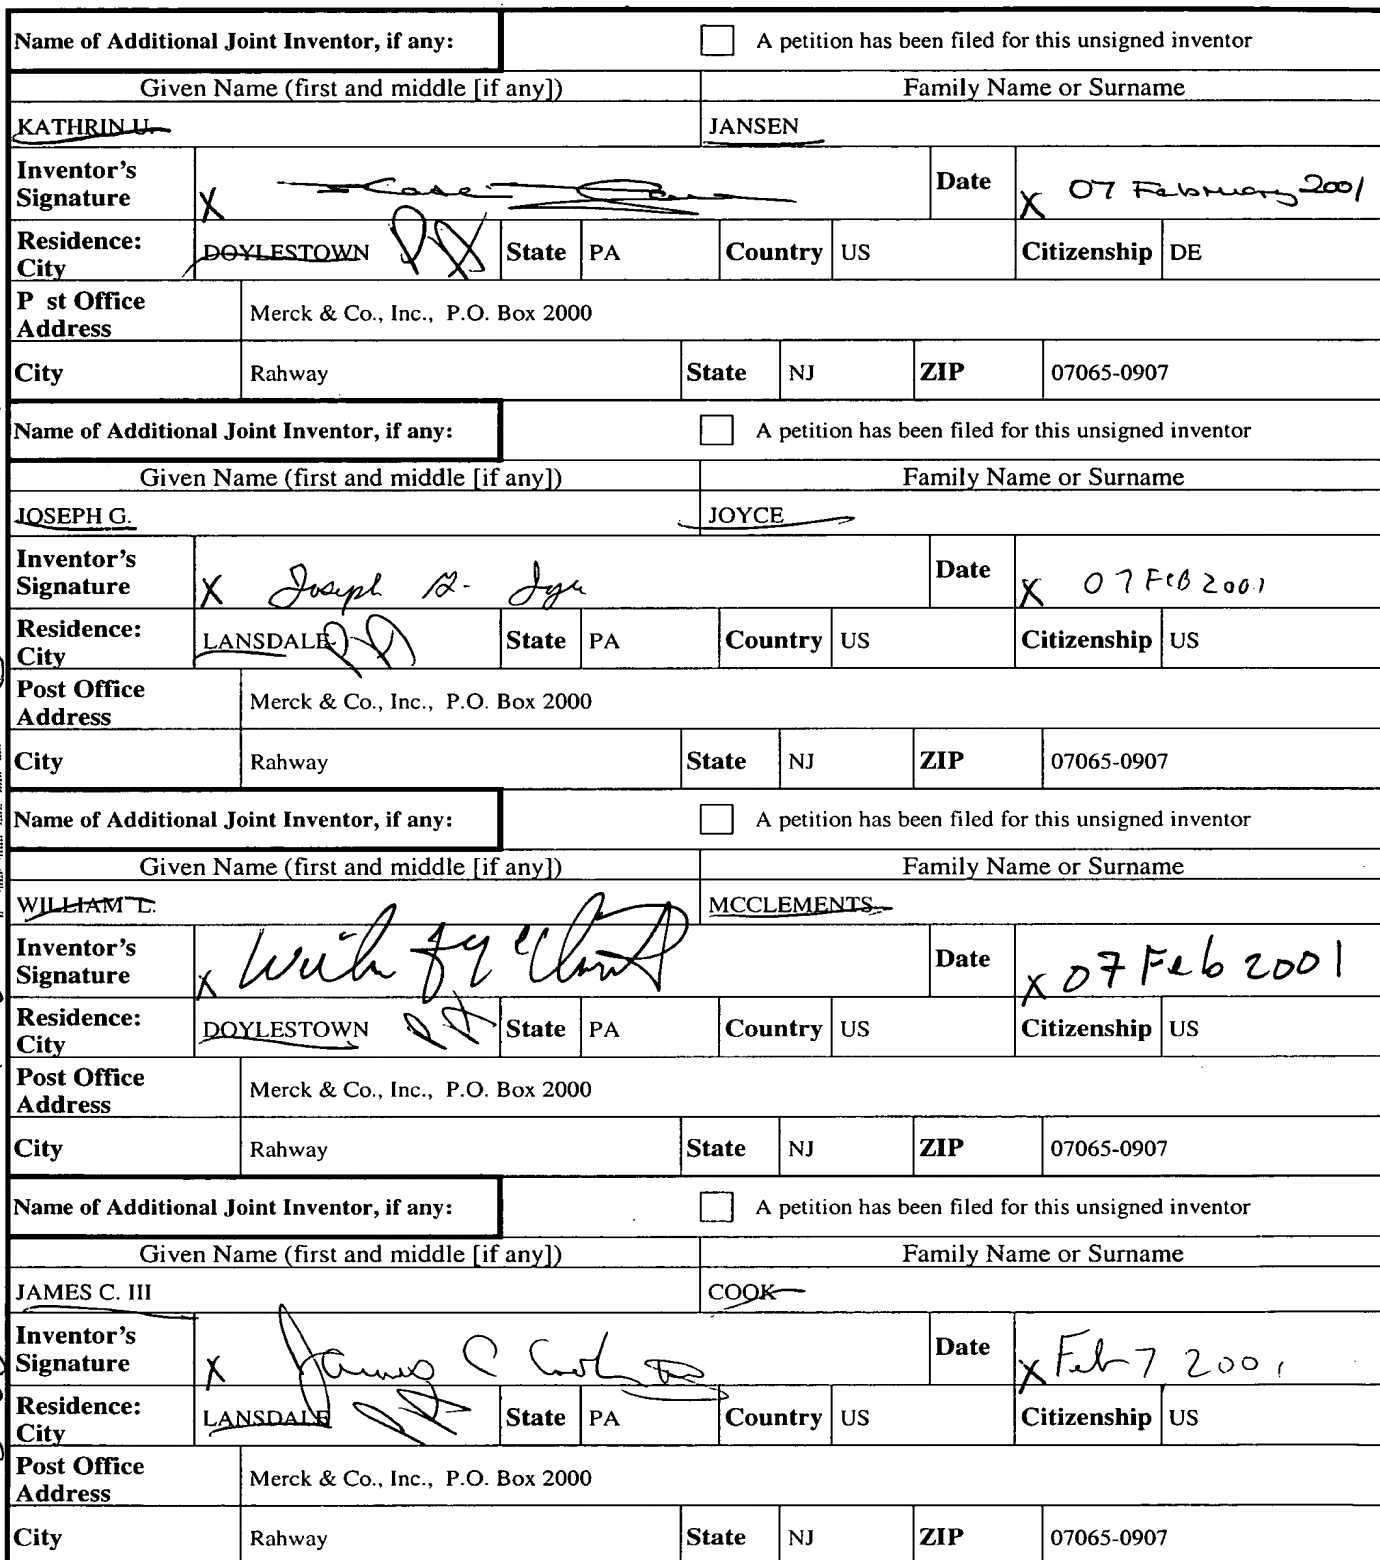 Name of Additional Joint Inventor, if any: A petition has been filed for this unsigned inventor
Given Name (first and middle [if any]) Family Name or Surname
KATHRIN U. JANSEN
Inventor's Signature X Date X 07 February 2001
Residence: City DOYLESTOWN State PA Country US Citizenship DE
P st Office Address Merck & Co., Inc., P.O. Box 2000
City Rahway State NJ ZIP 07065-0907
Name of Additional Joint Inventor, if any: A petition has been filed for this unsigned inventor
Given Name (first and middle [if any]) Family Name or Surname
JOSEPH G. JOYCE
Inventor's Signature X Joseph G. Joyce Date X 07 FEB 2001
Residence: City LANSDALE State PA Country US Citizenship US
Post Office Address Merck & Co., Inc., P.O. Box 2000
City Rahway State NJ ZIP 07065-0907
Name of Additional Joint Inventor, if any: A petition has been filed for this unsigned inventor
Given Name (first and middle [if any]) Family Name or Surname
WILLIAM L. MCCLEMENTS
Inventor's Signature X Date X 07 Feb 2001
Residence: City DOYLESTOWN State PA Country US Citizenship US
Post Office Address Merck & Co., Inc., P.O. Box 2000
City Rahway State NJ ZIP 07065-0907
Name of Additional Joint Inventor, if any: A petition has been filed for this unsigned inventor
Given Name (first and middle [if any]) Family Name or Surname
JAMES C. III COOK
Inventor's Signature X James C Cook III Date X Feb 7 2001
Residence: City LANSDALE State PA Country US Citizenship US
Post Office Address Merck & Co., Inc., P.O. Box 2000
City Rahway State NJ ZIP 07065-0907